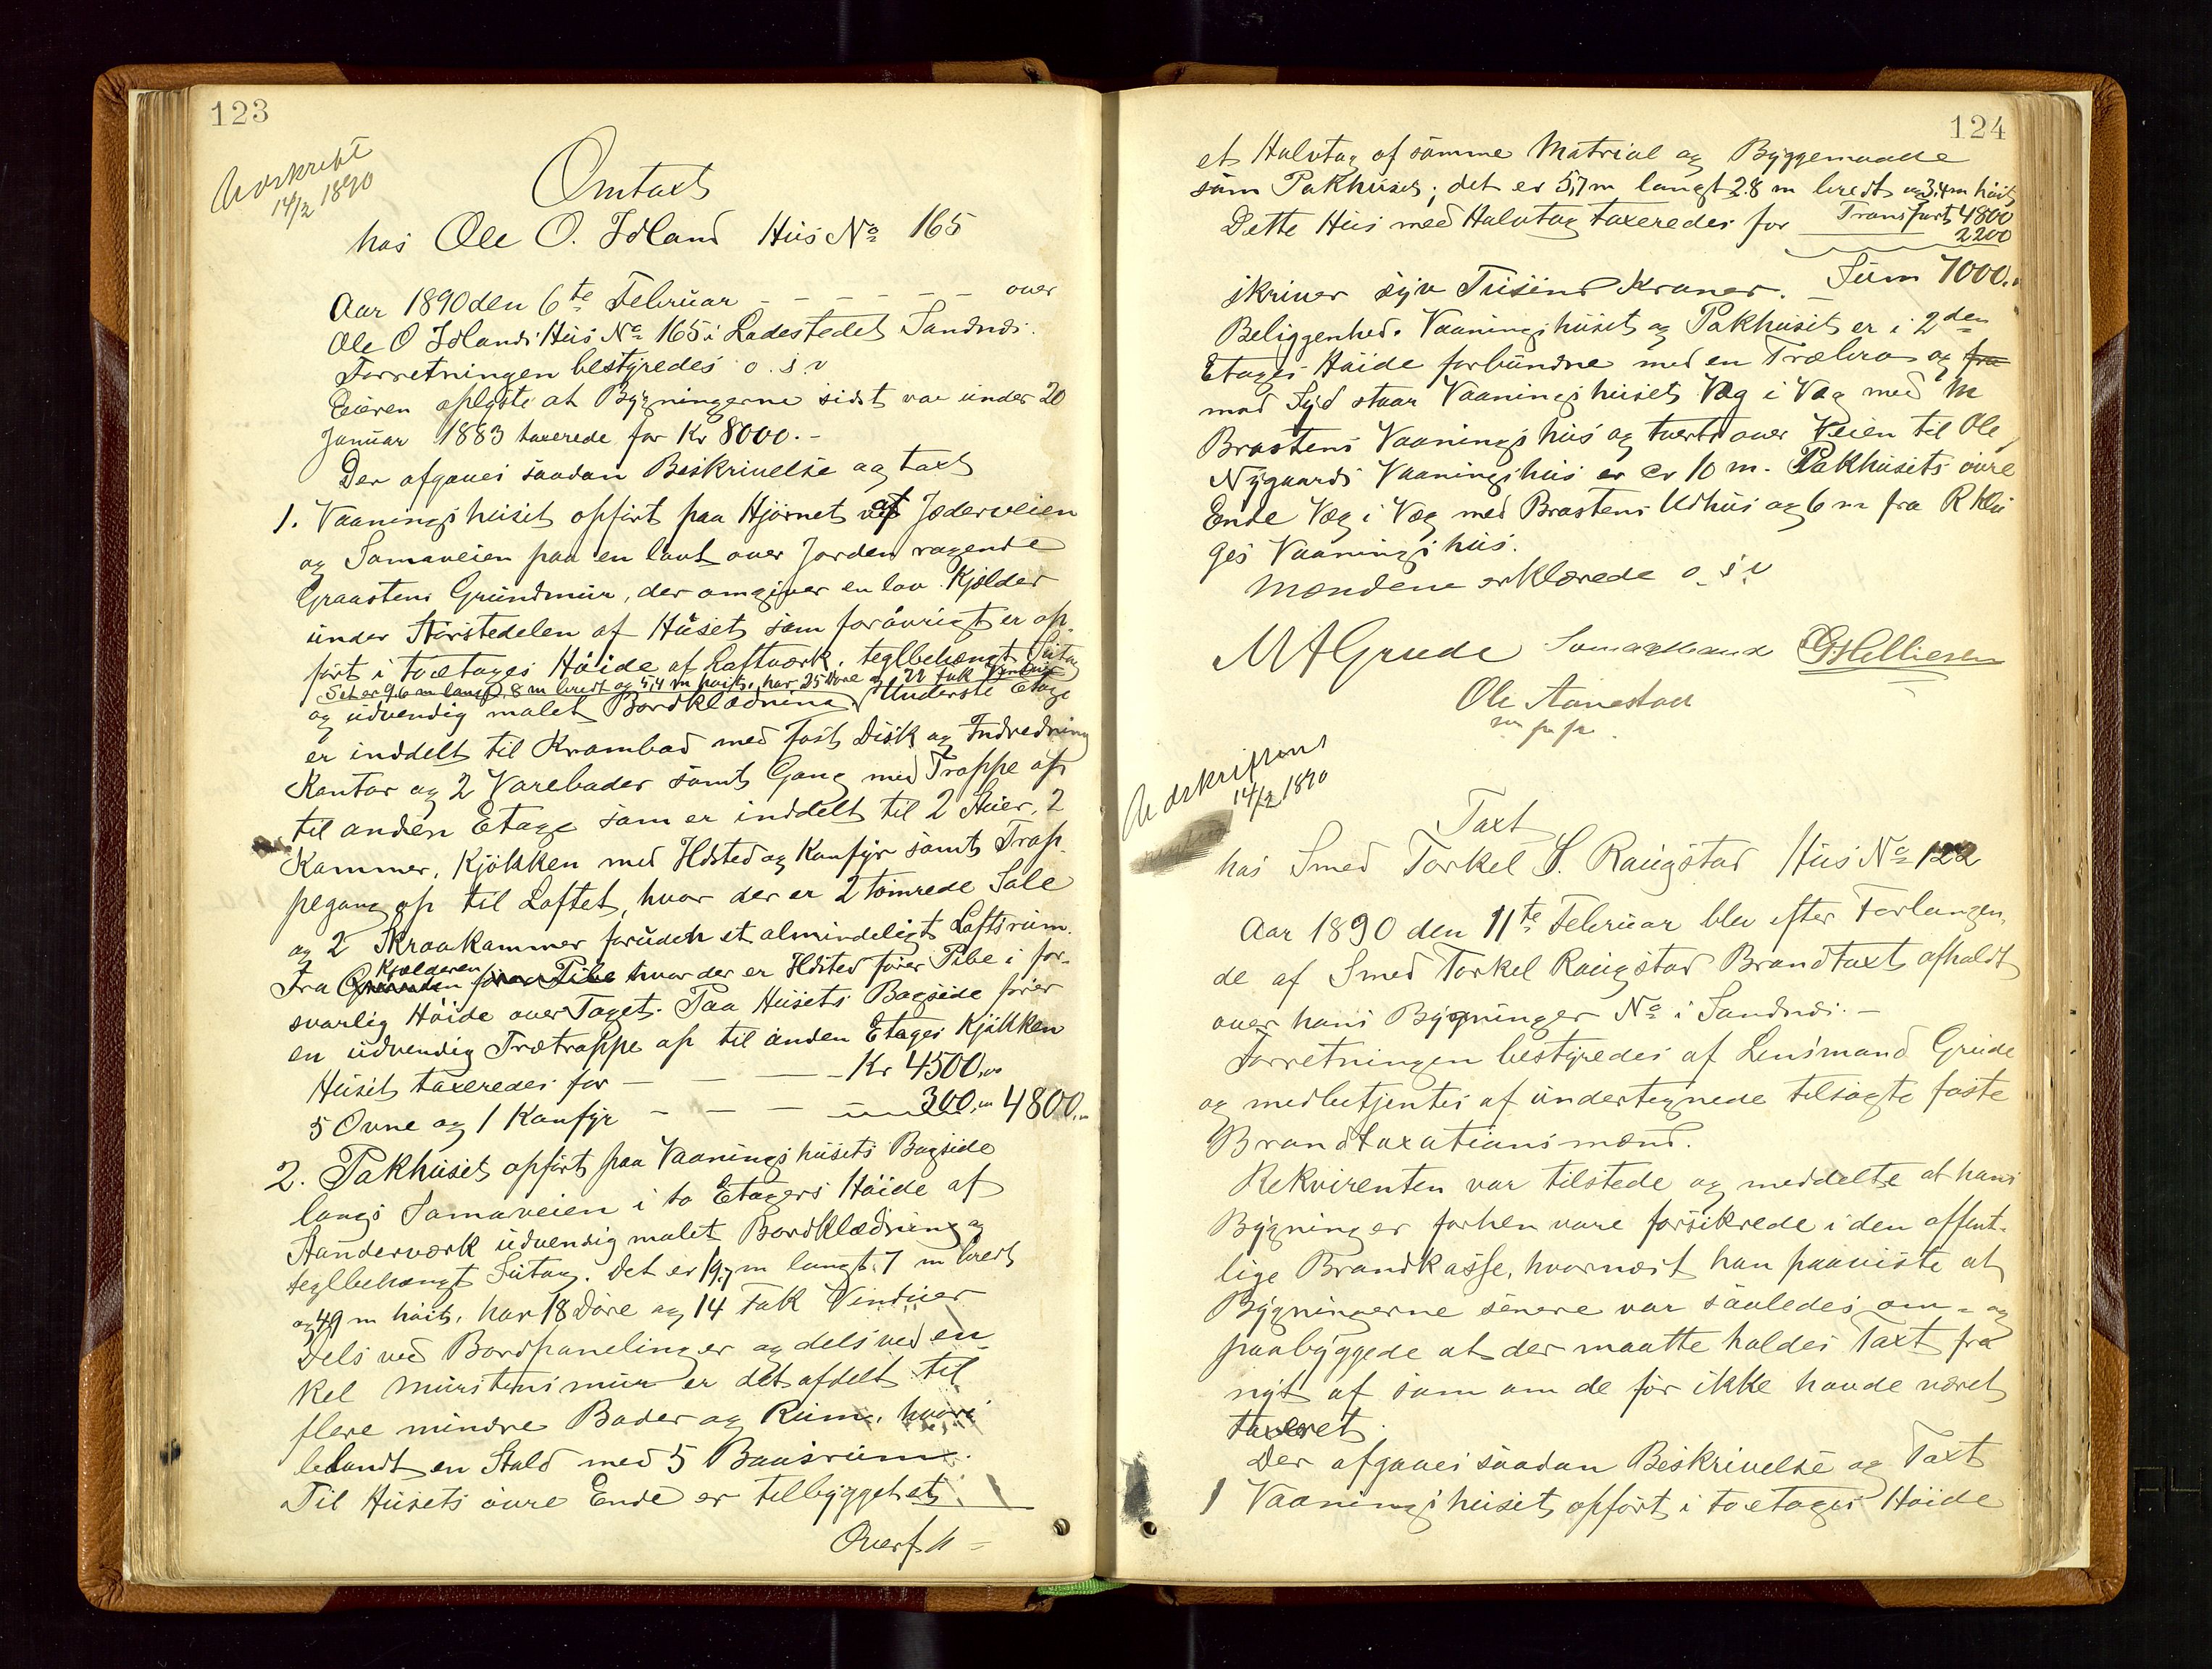 123
Udskrift
14/2 1890
Omtaxt
hos Ole O. Idland Hus No 165
Aar 1890 den 6te Februar - - - - - - over
Ole O Idlands Hus No 165 i Ladestedet Sandnds.
Forretningen bestyredes o. s. v
Eieren oplyste at Bygningerne sidst var under 20
Januar 1883 taxerede for Kr 8000.-
Der afgaves saadan Beskrivelse og taxt
1. Vaaningshuset opført paa Hjørnet af Jæderveien
og Somaveien paa en lavt over Jorden ragende
Graastens Grundmur, der omgiver en lav Kjelder
under Størstedelen af Huset som forøvrigt er op-
ført i to etages Høide af Laftværk, teglbehængt Sutag
Det er 9.6 m langt, 8 m bredt og 5,4 m høit, har 25 Døre og 22 Fak Vinduer
og udvendig malet Bordklædning. Underste Etage
er inddelt til Krambod med fast Disk og Indredning
Kontor og 2 Vareboder samt Gang med Trappe op
til anden Etage som er inddelt til 2 Stuer, 2
Kammer, Kjøkken med Ildsted og Komfyr samt Trap-
pegang op til Loftet, hvor der er 2 tømrede Sale
og 2 Skraakammer foruden et almindeligt Loftsrum.
Kjælderen
Fra Grunden fører Pibe hvor der er Ildsted fører Pibe i for-
svarlig Høide over Taget. Paa Husets Bagside fører
en udvendig Trætrappe op til anden Etages Kjøkken
Huset taxeredes for - - - - Kr 4500,00
5 Ovne og 1 Komfyr - - - 300,00 4800,00
2. Pakhuset opført paa Vaaningshusets Bagside
langs Somaveien i to Etagers Høide af
Standerværk udvendig malet Bordklædning og
teglbehængt Sutag. Det er 19,7 m langt, 7 m bredt
og 4,9 m høit, har 18 Døre og 14 Fak Vinduer
Dels ved Bordpanelinger og dels ved en-
kel Murstensmur er det afdelt til
flere mindre Boder og Rum, hvori
blandt en Stald med 5 Baasrum.
Til Husets øvre Ende er tilbygget et
Overf //-
124
et Halvtag af samme Matrial og Byggemaade
som Pakhuset; det er 5,7 m langt 2.8 m bredt og 3,4 m høit
Dette Hus med Halvtag taxeredes for Transport 4800
2200
skriver syv Tusind Kroner. Sum 7000,00
Beliggenhed. Vaaningshuset og Pakhuset er i 2den
Etages Høide forbundne med en Træbro og fra
mod Syd staar Vaaningshuset Væg i Væg med M
Brostens Vaaningshus og tverts over Veien til Ole
Nygaards Vaaningshus er cr 10 m. Pakhusets øvre
Ende Væg i Væg med Brostens Udhus og 6 m fra R Klu
ges Vaaningshus.
Mændene erklærede o. s. v
M A Grude
Ole Aanestad
m p p.
Udskrifsens
14/2 1890
Taxt
hos Smed Torkel S. Raugstad Hus No 122
Aar 1890 den 11te Februar blev efter Forlangen-
de af Smed Torkel Raugstad Brandtaxt afholdt
over hans Bygninger No i Sandnds. -
Forretningen bestyredes af Lensmand Grude
og medbetjentes af undertegnede tilsagte faste
Brandtaxationsmænd.
Rekvirenten var tilstede og meddelte at hans
Bygninger forhen vare forsikrede i den offent-
lige Brandkasse, hvornæst han paaviste at
Bygningerne senere var saaledes om- og
paabyggede at der maatte holdes Taxt fra
nyt af som om de før ikke havde været
taxeret.
Der afgaves saadan Beskrivelse og Taxt
1 Vaaningshuset opført i to etages Høide